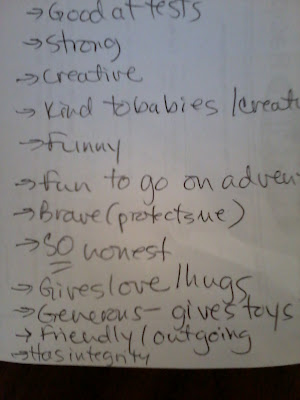 →Good at tests
→Strong
→Creative
→Kind to babies /creat
→Funny
→Fun to go on adven
→Brave (protects me)
→SO honest
→Gives love/hugs
→Generous- gives toys
→Friendly/outgoing
→Has integrity